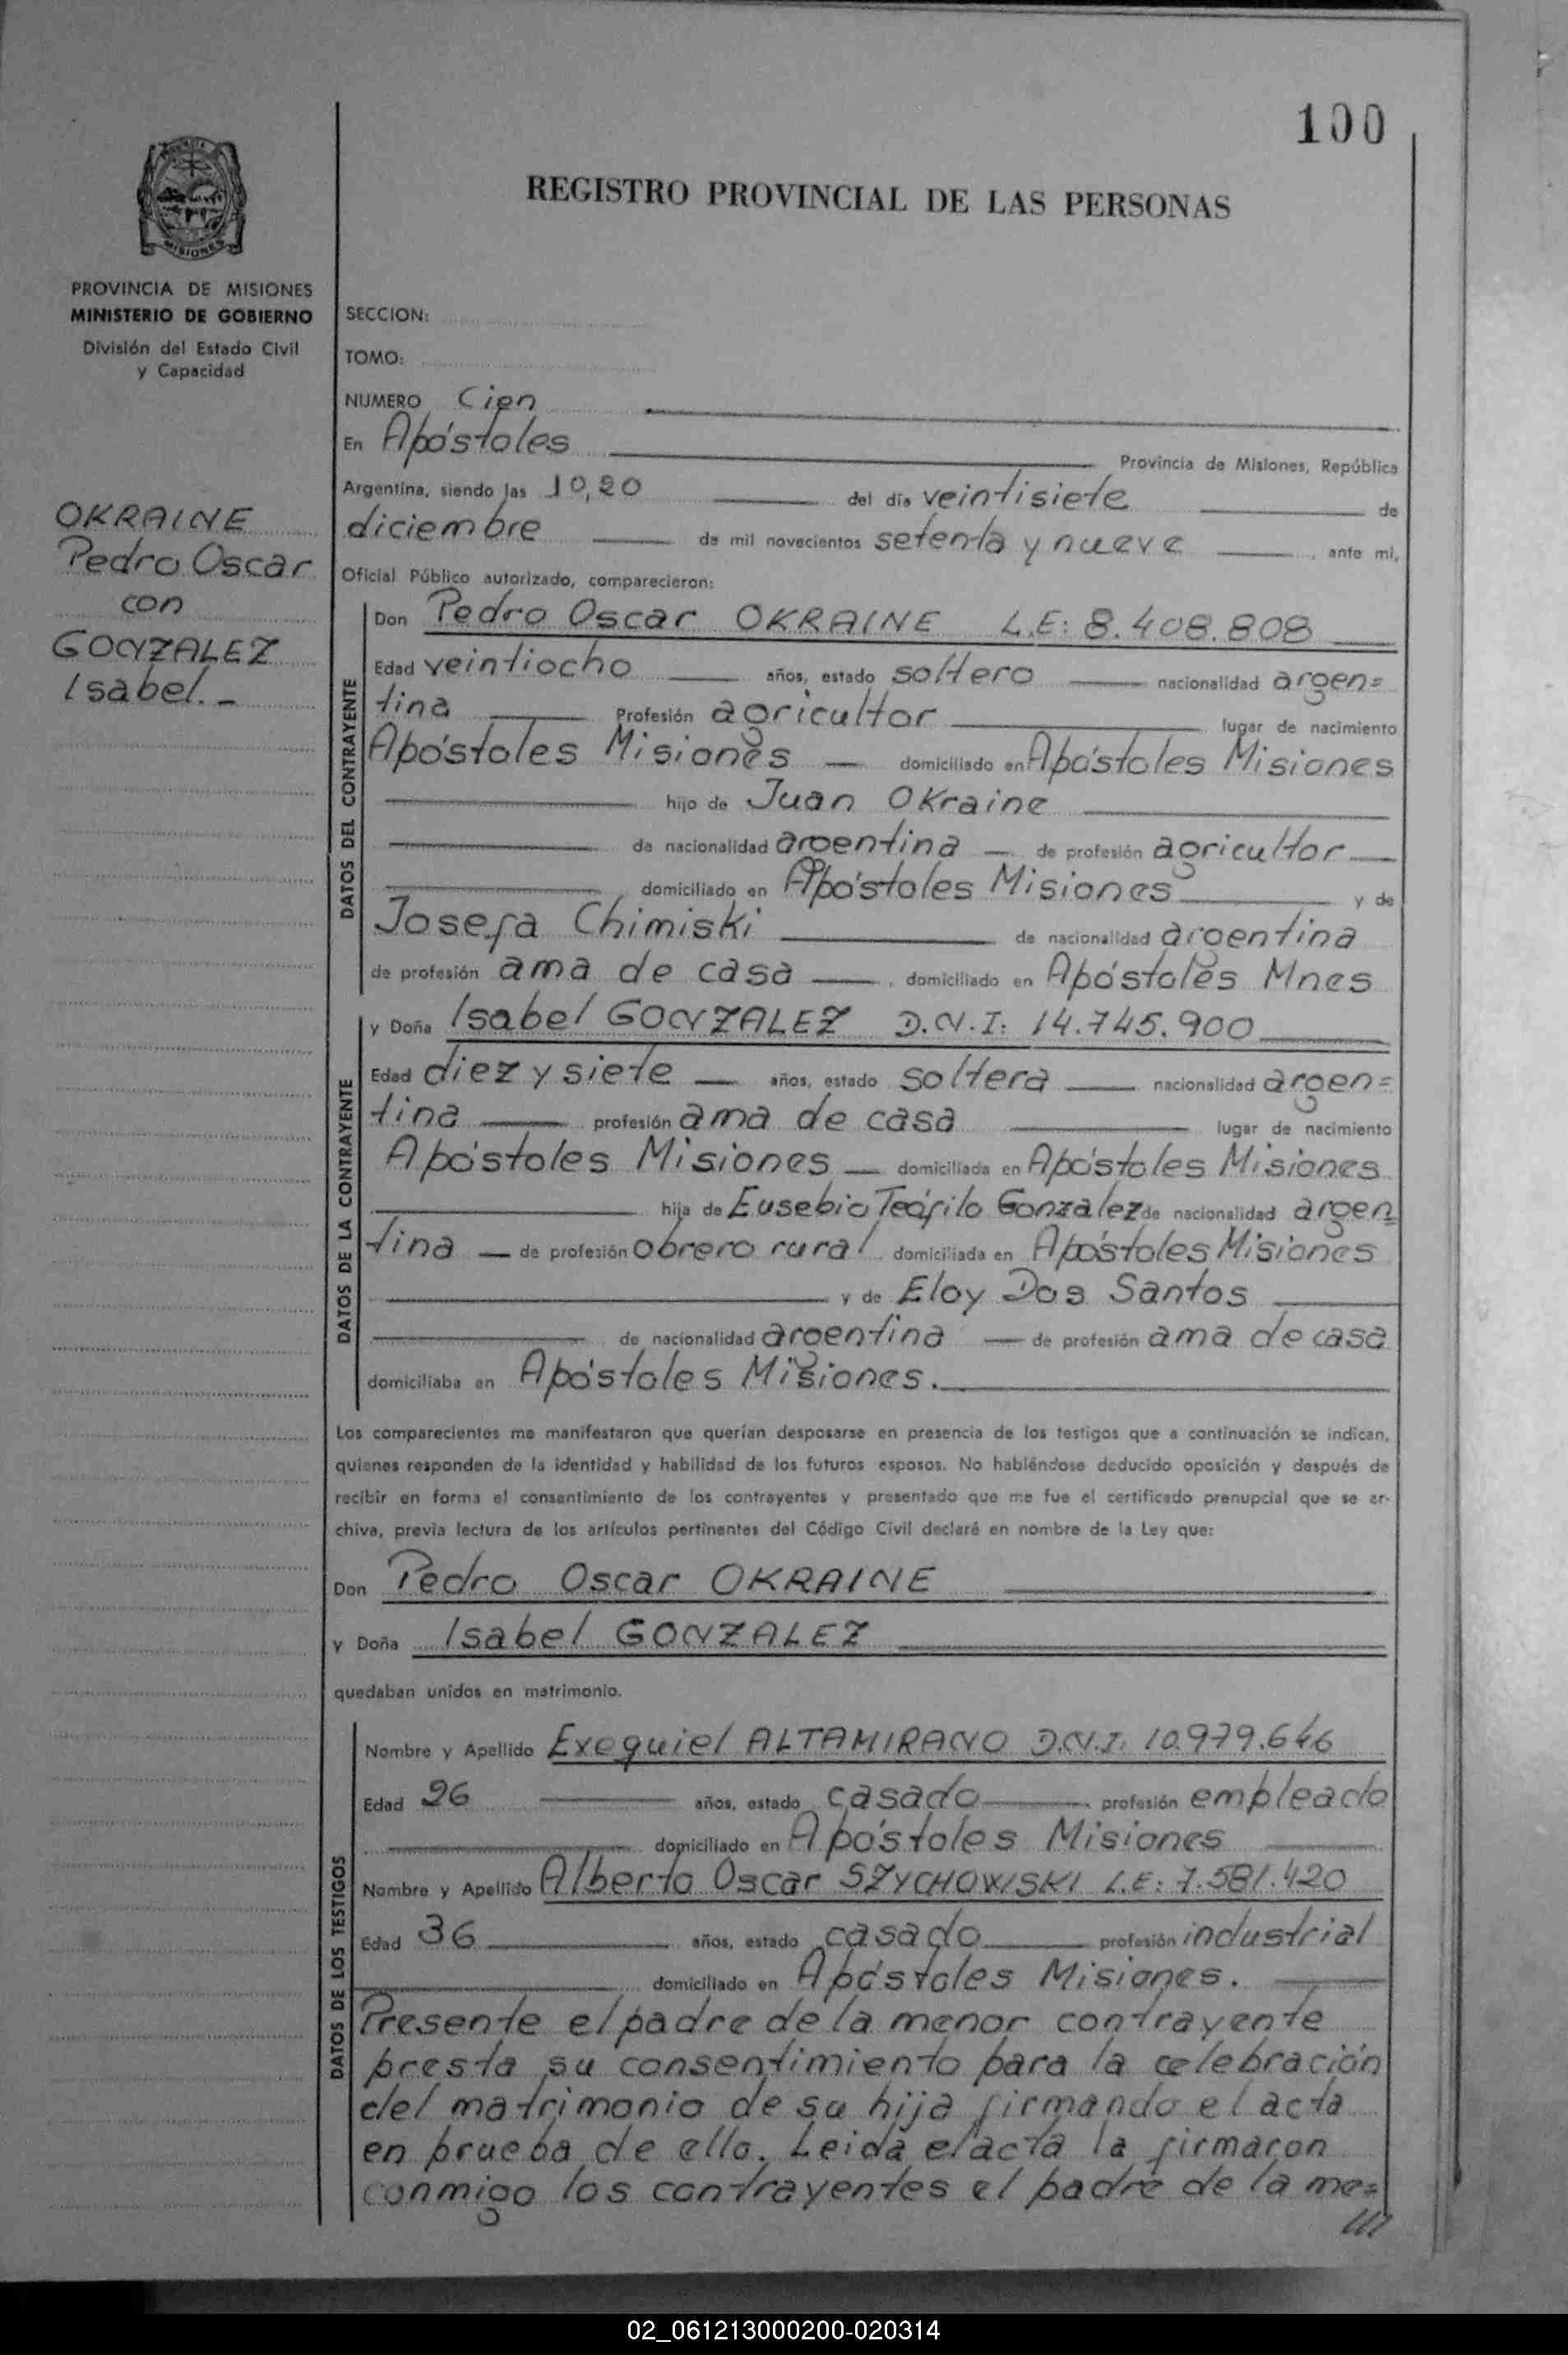 100
REGISTRO PROVINCIAL DE LAS PERSONAS
MISIONES
PROVINCIA DE MISIONES
MINISTERIO DE GOBIERNO
División del Estado Civil
y Capacidad
OKRAINE
Pedro Oscar
con
GONZALEZ
Isabel.-
SECCION:
TOMO:
NUMERO Cien
En Apóstoles Provincia de Misiones, República
Argentina, siendo las 10,20 del día veintisiete de
diciembre de mil novecientos setenta y nueve, ante mi,
Oficial Público autorizado, comparecieron:
DATOS DEL CONTRAYENTE
Don Pedro Oscar OKRAINE L.E: 8.408.808
Edad veintiocho años, estado soltero nacionalidad argen=
tina Profesión agricultor lugar de nacimiento
Apóstoles Misiones domiciliado en Apóstoles Misiones
hijo de Juan Okraine
de nacionalidad argentina de profesión agricultor
domiciliado en Apóstoles Misiones y de
Josefa Chimiski de nacionalidad argentina
de profesión ama de casa, domiciliado en Apóstoles Mnes
DATOS DE LA CONTRAYENTE
y Doña Isabel GONZALEZ D.N.I: 14.745.900
Edad diez y siete años, estado soltera nacionalidad argen=
tina profesión ama de casa lugar de nacimiento
Apóstoles Misiones domiciliada en Apóstoles Misiones
hija de Eusebio Teófilo Gonzalez de nacionalidad argen=
tina de profesión obrero rural domiciliada en Apóstoles Misiones
y de Eloy Dos Santos
de nacionalidad argentina de profesión ama de casa
domiciliaba en Apóstoles Misiones.
Los comparecientes me manifestaron que querían desposarse en presencia de los testigos que a continuación se indican,
quienes responden de la identidad y habilidad de los futuros esposos. No habiéndose deducido oposición y después de
recibir en forma el consentimiento de los contrayentes y presentado que me fue el certificado prenupcial que se ar-
chiva, previa lectura de los artículos pertinentes del Código Civil declaré en nombre de la Ley que:
Don Pedro Oscar OKRAINE
y Doña Isabel GONZALEZ
quedaban unidos en matrimonio.
DATOS DE LOS TESTIGOS
Nombre y Apellido Exequiel ALTAMIRANO D.N.I. 10.979.646
Edad 26 años, estado casado profesión empleado
domiciliado en Apóstoles Misiones
Nombre y Apellido Alberto Oscar SZYCHOWSKI L.E: 7.581.420
Edad 36 años, estado casado profesión industrial
domiciliado en Apóstoles Misiones.
Presente el padre de la menor contrayente
presta su consentimiento para la celebración
del matrimonio de su hija firmando el acta
en prueba de ello. Leida el acta la firmaron
conmigo los contrayentes el padre de la me=
///
02_061213000200-020314